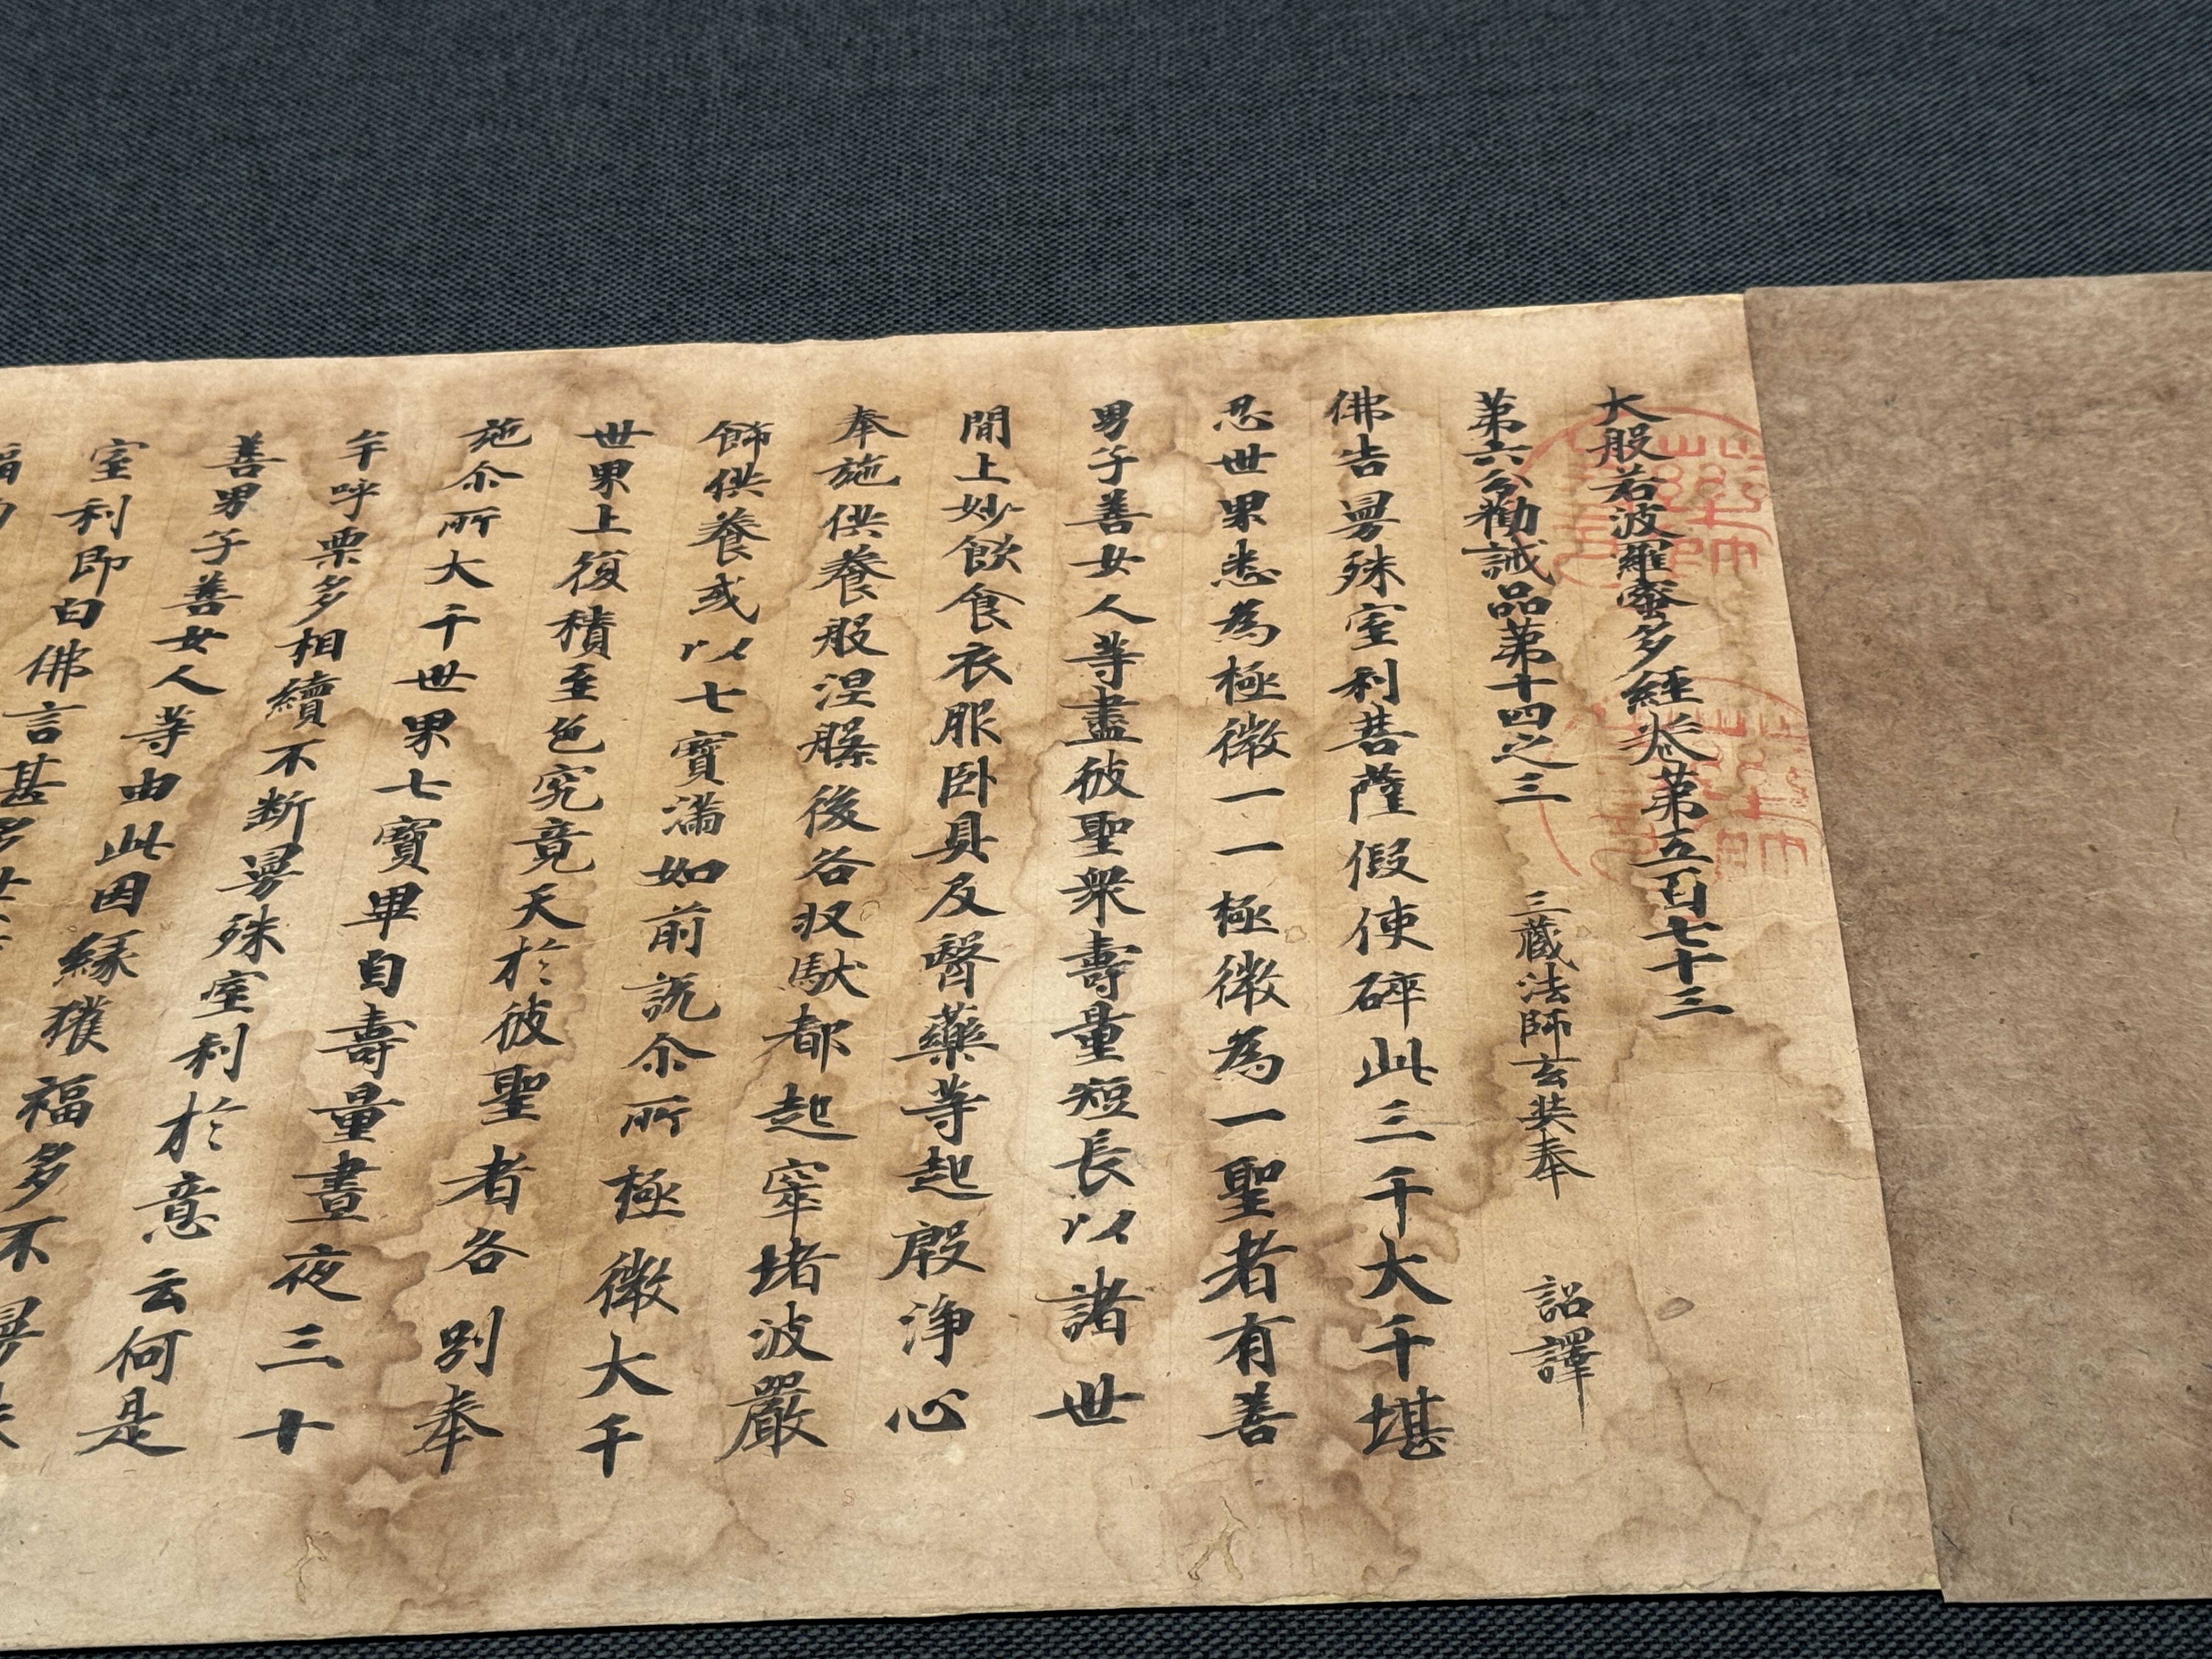 大般若波羅蜜多經卷第五百七十三
第六分勸誡品第十四之三　三藏法師玄奘奉　詔譯
佛告曼殊室利菩薩假使碎此三千大千堪
忍世界悉為極微一一極微為一聖者有善
男子善女人等盡彼聖衆壽量短長以諸世
間上妙飲食衣服卧具及醫藥等起殷淨心
奉施供養般涅槃後各収馱都起窣堵波嚴
飾供養或以七寶滿如前說尒所極微大千
世界上復積至色究竟天於彼聖者各別奉
施尒所大千世界七寶畢自壽量晝夜三十
牟呼栗多相續不断曼殊室利於意云何是
善男子善女人等由此因緣獲福多不曼殊
室利即白佛言甚多世尊
福